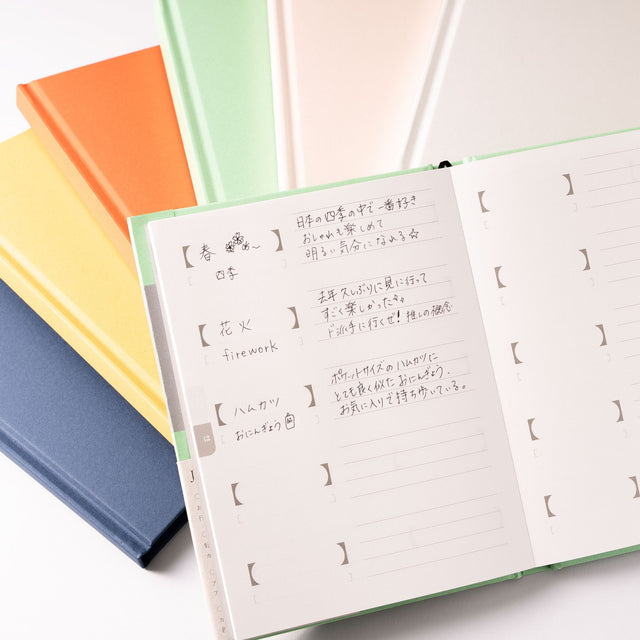 春
四季
日本の四季の中で一番好き
おしゃれも楽しめて
明るい気分になれる☆
花火
firework
去年久しぶりに見に行って
すごく楽しかった
ド派手に行くぜ！推しの概念
ハムカツ
おにんぎょう
ポケットサイズのハムカツに
とても良く似たおにんぎょう.
お気に入りで持ち歩いている。
は
J